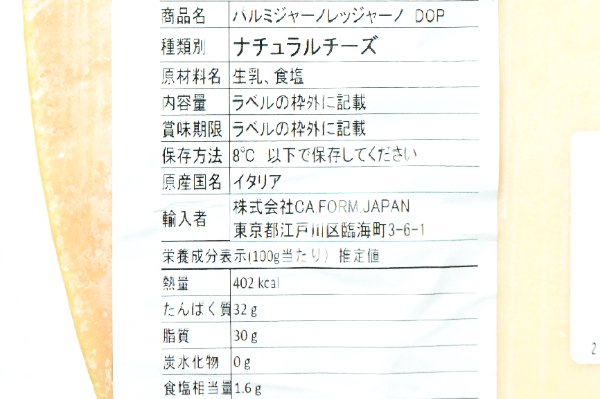 商品名 パルミジャーノレッジャーノ DOP
種類別 ナチュラルチーズ
原材料名 生乳、食塩
内容量 ラベルの枠外に記載
賞味期限 ラベルの枠外に記載
保存方法 8℃ 以下で保存してください
原産国名 イタリア
輸入者 株式会社CA.FORM.JAPAN
東京都江戸川区臨海町3-6-1
栄養成分表示(100g当たり) 推定値
熱量 402 kcal
たんぱく質 32 g
脂質 30 g
炭水化物 0 g
食塩相当量 1.6 g
2